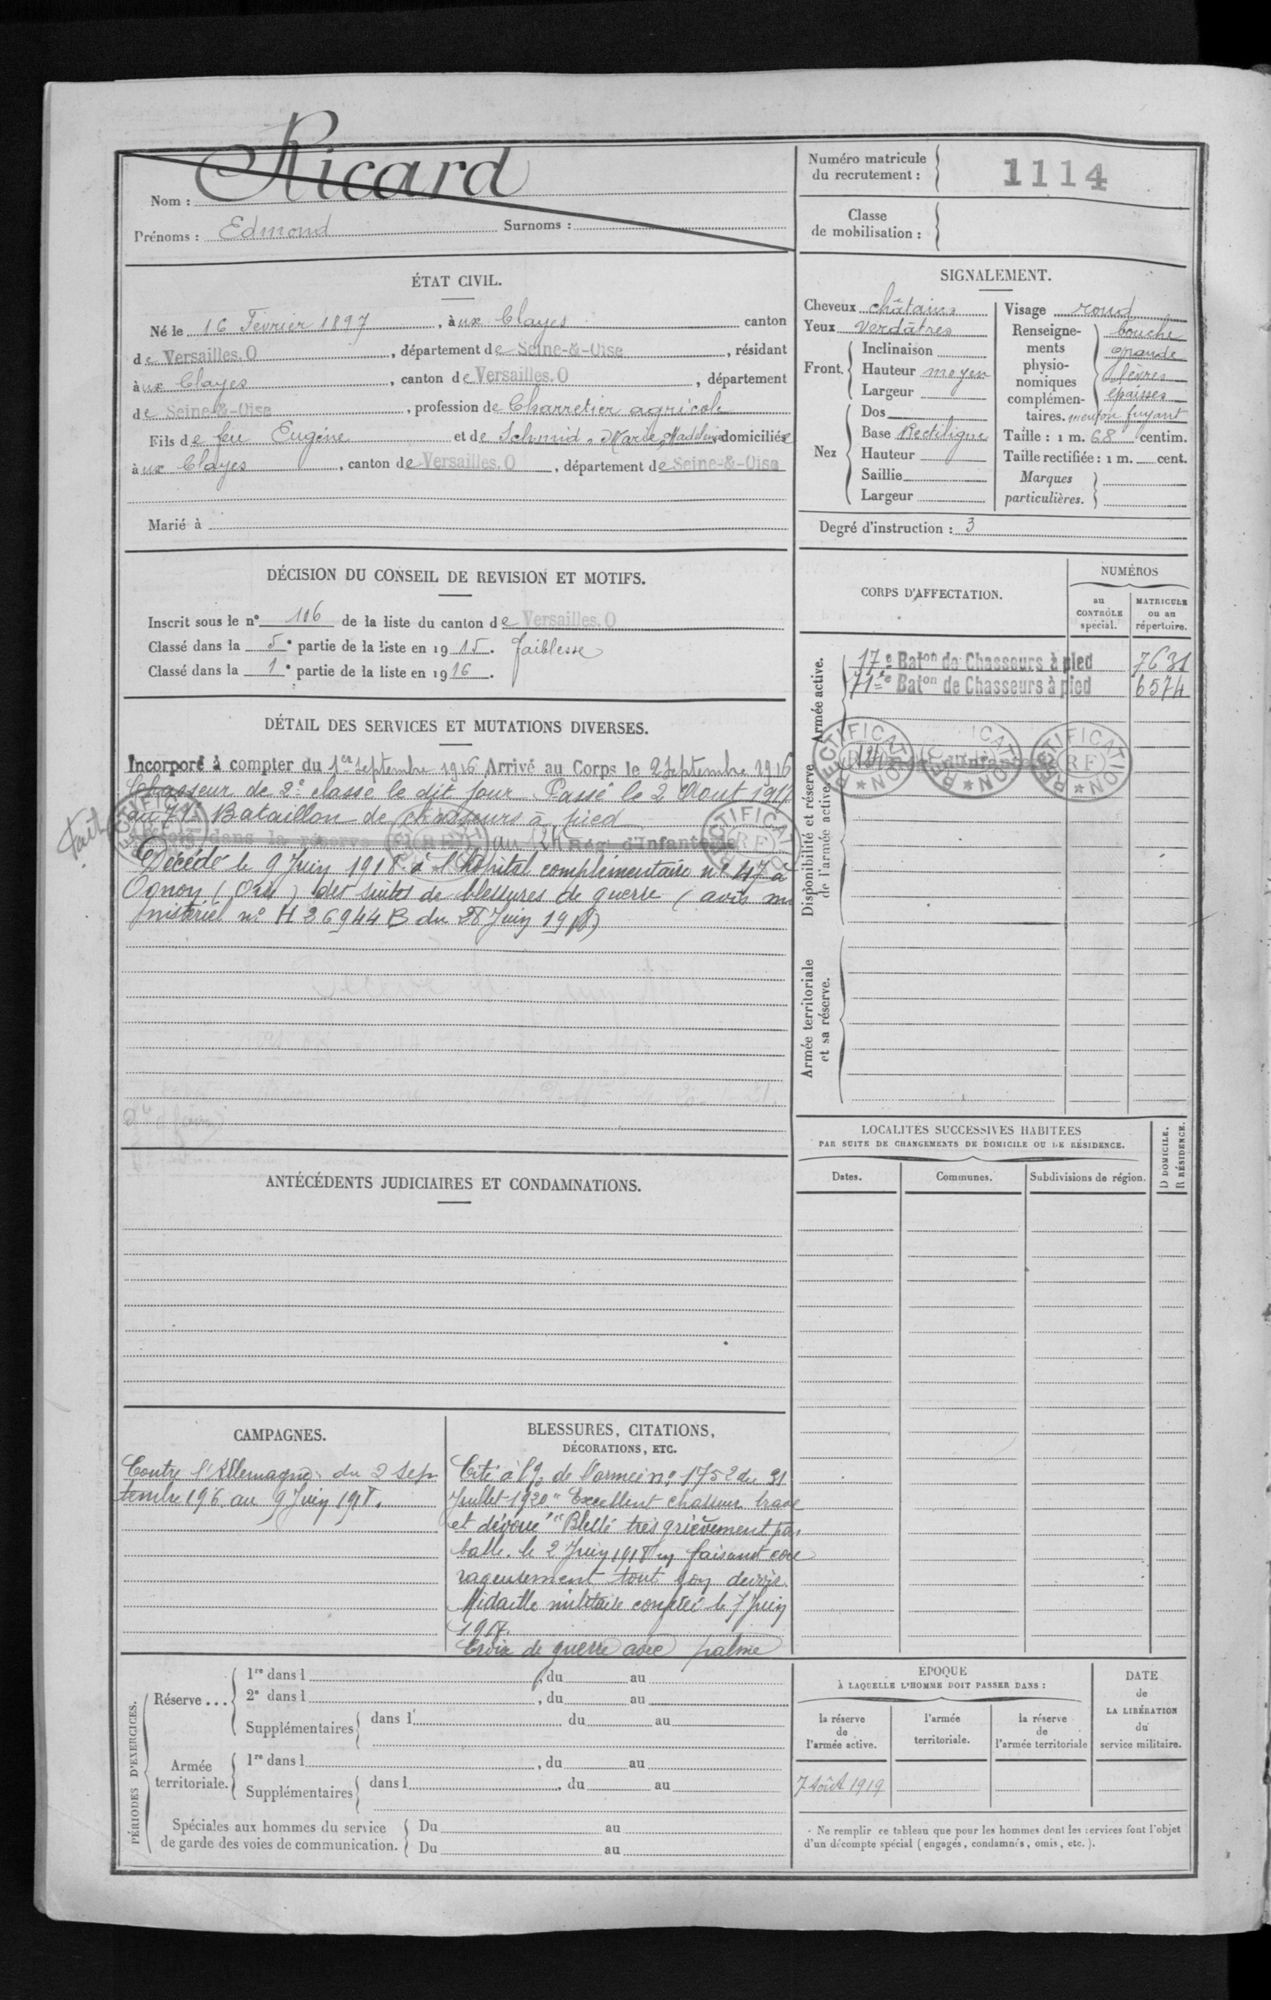 Ricard
Nom :
Prénoms : Edmond Surnoms :
Numéro matricule du recrutement : 1114
Classe de mobilisation :
ÉTAT CIVIL.
Né le 16 Février 1897, aux Clayes canton
de Versailles.O, département de Seine-&-Oise, résidant
aux Clayes, canton de Versailles.O, département
de Seine-&-Oise, profession de Charretier agricole
Fils de feu Eugène et de Schmid, Marie, Madeleine domiciliée
aux Clayes, canton de Versailles.O, département de Seine-&-Oise
Marié à
SIGNALEMENT.
Cheveux châtains
Yeux verdâtres
Front.
Inclinaison
Hauteur moyen
Largeur
Nez
Dos
Base Rectiligne
Hauteur
Saillie
Largeur
Visage rond
Renseignements physionomiques complémentaires.
bouche
grande
lèvres
épaisses
menton fuyant
Taille : 1 m. 68 centim.
Taille rectifiée : 1 m. cent.
Marques particulières.
Degré d'instruction : 3
DÉCISION DU CONSEIL DE REVISION ET MOTIFS.
Inscrit sous le n° 106 de la liste du canton de Versailles.O
Classé dans la 5e partie de la liste en 1915. Faiblesse
Classé dans la 1e partie de la liste en 1916.
CORPS D'AFFECTATION.
NUMÉROS
au CONTRÔLE spécial.
MATRICULE ou au répertoire.
Armée active.
17e Baton de Chasseurs à pied 7631
71e Baton de Chasseurs à pied 6574
Disponibilité et réserve de l'armée active.
RECTIFICATION RF
RECTIFICATION
RECTIFICATION RF
Armée territoriale et sa réserve.
DÉTAIL DES SERVICES ET MUTATIONS DIVERSES.
Incorporé à compter du 1er septembre 1916 Arrivé au Corps le 2 Septembre 1916
Chasseur de 2e classe le dit jour. Passé le 2 Août 1917
au 71e Bataillon de chasseurs à pied
dans la réserve au 24 Rég. d'Infanterie
RECTIFICATION RF
Décédé le 9 Juin 1918 à l'hôpital complémentaire n° 47 à
Ognon (Oise) des suites de blessures de guerre (avis mi
nistériel n° H 36944 B du 28 Juin 1918)
ANTÉCÉDENTS JUDICIAIRES ET CONDAMNATIONS.
LOCALITÉS SUCCESSIVES HABITÉES
PAR SUITE DE CHANGEMENTS DE DOMICILE OU DE RÉSIDENCE.
Dates.
Communes.
Subdivisions de région.
D DOMICILE.
R RÉSIDENCE.
CAMPAGNES.
Contre l'Allemagne du 2 sep
tembre 196 au 9 Juin 198.
BLESSURES, CITATIONS,
DÉCORATIONS, ETC.
Cité à l'O. de l'armée n° 1752 du 31
Juillet 1920 "Excellent chasseur brave
et dévoué" "Blessé très grièvement par
balle le 2 Juin 1918 en faisant cou
rageusement tout son devoir.
Médaille militaire conférée le 7 Juin
Croix de guerre avec palme
PÉRIODES D'EXERCICES.
Réserve...
1re dans l , du au
2e dans l , du au
Supplémentaires dans l du au
Armée territoriale.
1re dans l , du au
Supplémentaires dans l , du au
Spéciales aux hommes du service
de garde des voies de communication.
Du au
Du au
ÉPOQUE
À LAQUELLE L'HOMME DOIT PASSER DANS :
la réserve de l'armée active.
l'armée territoriale.
la réserve de l'armée territoriale
DATE de LA LIBÉRATION du service militaire.
7 Août 1919
Ne remplir ce tableau que pour les hommes dont les services font l'objet
d'un décompte spécial (engagés, condamnés, omis, etc.).